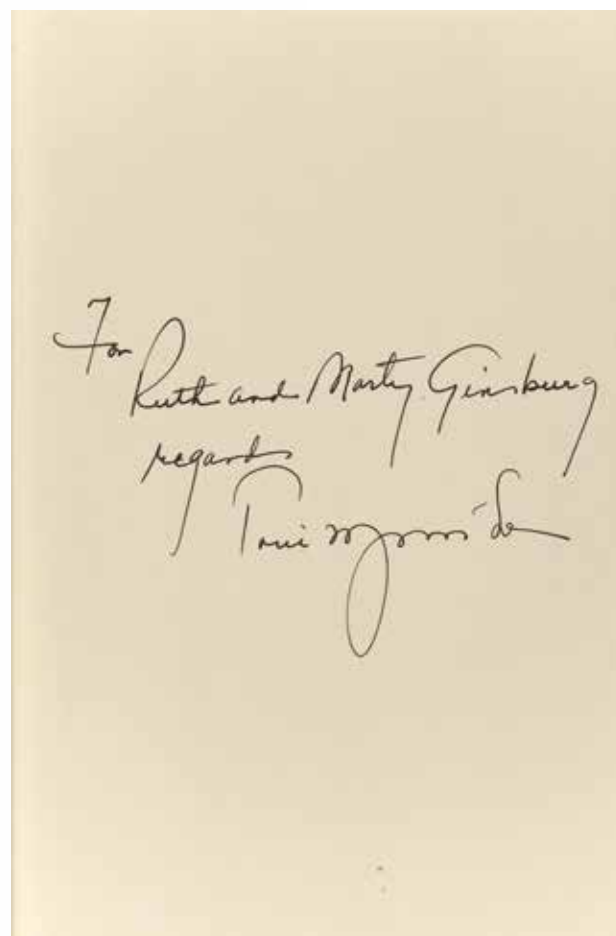 For
Ruth and Marty Ginsburg
regards
Toni Morrison